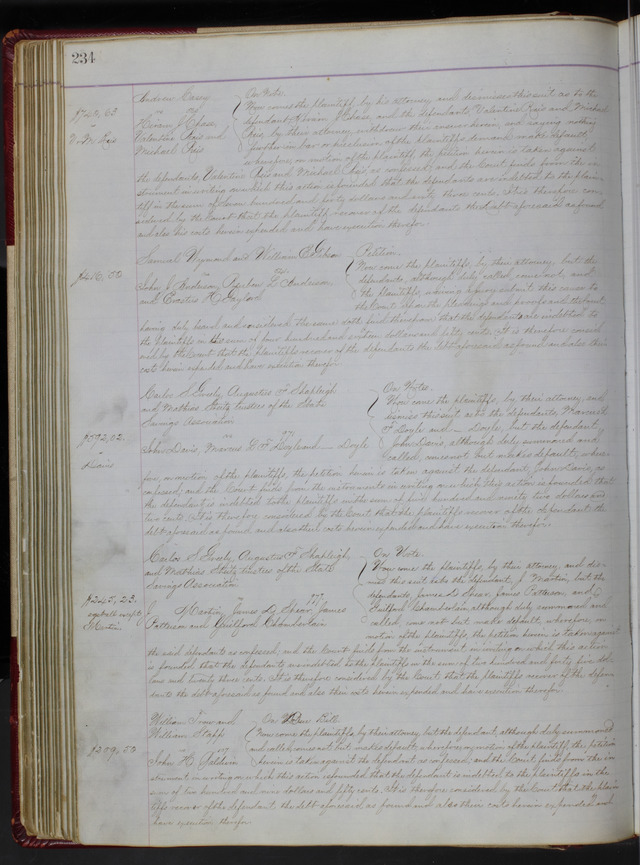 234
Andrew Casey } On Note.
$742,63 vs Now comes the plaintiff, by his attorney, and dismisses this suit as to the
Hiram J Chase, defendant Hiram J Chase, and the defendants, Valentine Reis and Michael
Valentine Reis and Reis, by their attorney, withdraw their answer herein, and saying nothing
Michael Reis further in bar or preclusion of the plaintiffs demand, make default;
wherefore, on motion of the plaintiff, the petition herein is taken against
the defendants, Valentine Reis and Michael Reis, as confessed; and the Court finds from the in-
strument in writing on which this action is founded, that the defendants are indebted to the plain-
tiff in the sum of seven hundred and forty two dollars and sixty three cents. It is therefore con-
sidered by the Court that the plaintiff recover of the defendants the debt aforesaid as found
and also his costs herein expended and have execution therefor.
Samuel Wymond and William C } Petition.
$416,50 vs Now come the plaintiffs, by their attorney, but the
John J Anderson, Reuben L Anderson defendants, although duly called, come not, and
and Erastus the plaintiffs, waiving a jury, submit this cause to
the Court upon the pleadings and proofs and the Court
having duly heard and considered the same doth find therefrom that the defendants are indebted to
the plaintiffs in the sum of four hundred and sixteen dollars and fifty cents. It is therefore consid-
ered by the Court that the plaintiffs recover of the defendants the debt aforesaid as found and also their
costs herein expended and have execution therefor.
Carlos S. Greeley, Augustus F Shapleigh, } On Note.
and Mathias Steitz trustees of the State Now come the plaintiffs, by their attorney, and
Savings Association dismiss this suit as to the defendants, Marcus L
$592,02. vs F Doyle and — Doyle, but the defendant,
John Davis, Marcus L F Doyle and — Doyle John Davis, although duly summoned and
called, comes not but makes default; where-
fore, on motion of the plaintiffs, the petition herein is taken against the defendant, John Davis, as
confessed; and the Court finds from the instruments in writing on which this action is founded that
the defendant is indebted to the plaintiffs in the sum of five hundred and ninety two dollars and
two cents. It is therefore considered by the Court that the plaintiffs recover of the defendant the
debt aforesaid as found and also their costs herein expended and have execution therefor.
Carlos S. Greeley, Augustus F Shapleigh, } On Note.
and Mathias Steitz trustees of the State Now come the plaintiffs, by their attorney, and dis-
Savings Association miss this suit as to the defendant, J. Martin, but the
$245,23. vs defendants, James L Spear, James Patterson, and
J. Martin, James L. Spear, James Guilford Chamberlain although duly summoned and
Patterson and Guilford Chamberlain called, come not but make default; wherefore, on
motion of the plaintiffs, the petition herein is taken against
the said defendants as confessed; and the Court finds from the instrument in writing on which this action
is founded that the defendants are indebted to the plaintiffs in the sum of two hundred and forty five dol-
lars and twenty three cents. It is therefore considered by the Court that the plaintiffs recover of the defen-
dants the debt aforesaid as found and also their costs herein expended and have execution therefor.
William and } On Due Bill.
William Stapp Now come the plaintiffs, by their attorney, but the defendant, although duly summoned
$209,50 vs and called comes not but makes default; wherefore, on motion of the plaintiffs, the petition
John H. herein is taken against the defendant as confessed; and the Court finds from the in-
strument in writing on which this action is founded that the defendant is indebted to the plaintiffs in the
sum of two hundred and nine dollars and fifty cents. It is therefore considered by the Court that the plain-
tiffs recover of the defendant, the debt aforesaid as found and also their costs herein expended and
have execution therefor.